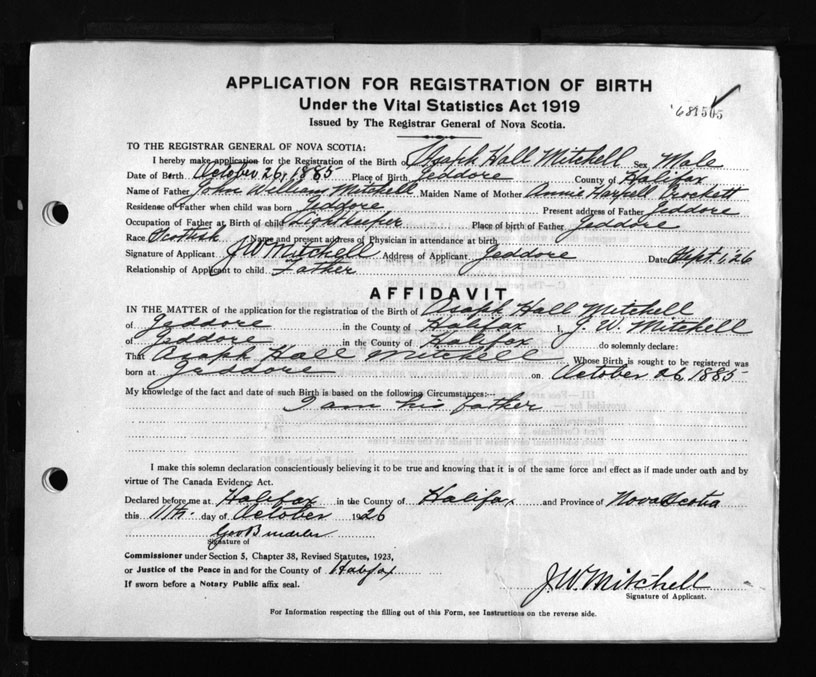 APPLICATION FOR REGISTRATION OF BIRTH
Under the Vital Statistics Act 1919
Issued by The Registrar General of Nova Scotia.
TO THE REGISTRAR GENERAL OF NOVA SCOTIA:
I hereby make application for the Registration of the Birth of Asaph Hall Mitchell Sex Male
Date of Birth October 26, 1885 Place of Birth Jeddore County of Halifax
Name of Father John William Mitchell Maiden Name of Mother Annie Harpell Crockett
Residence of Father when child was born Jeddore Present address of Father Jeddore
Occupation of Father at Birth of child Light keeper Place of birth of Father Jeddore
Race Scottish Name and present address of Physician in attendance at birth
Signature of Applicant J W Mitchell Address of Applicant Jeddore Date Sept 1, 26
Relationship of Applicant to child Father
AFFIDAVIT
IN THE MATTER of the application for the registration of the Birth of Asaph Hall Mitchell
of Jeddore in the County of Halifax I, J. W. Mitchell
of Jeddore in the County of Halifax do solemnly declare:
That Asaph Hall Mitchell Whose Birth is sought to be registered was
born at Jeddore on October 26, 1885
My knowledge of the fact and date of such Birth is based on the following Circumstances:—
I am his father
I make this solemn declaration conscientiously believing it to be true and knowing that it is of the same force and effect as if made under oath and by
virtue of The Canada Evidence Act.
Declared before me at Halifax in the County of Halifax and Province of Nova Scotia
this 11th. day of October 1926
Geo B
Signature of
Commissioner under Section 5, Chapter 38, Revised Statutes, 1923,
or Justice of the Peace in and for the County of Halifax
If sworn before a Notary Public affix seal.
J. W. Mitchell
Signature of Applicant.
For Information respecting the filling out of this Form, see Instructions on the reverse side.